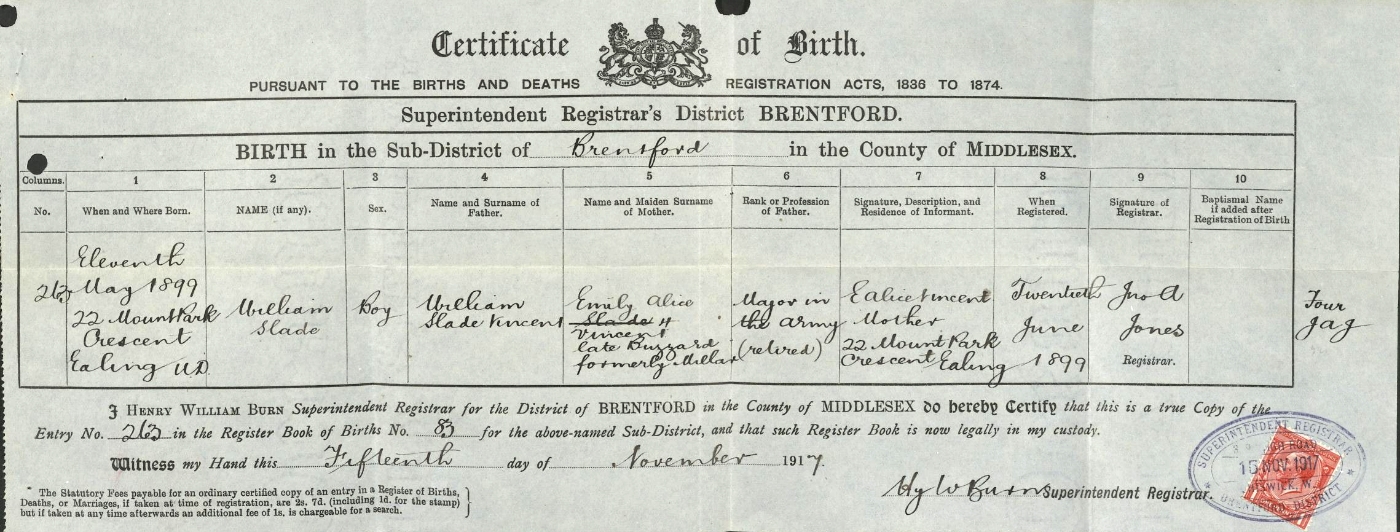 Certificate of Birth.
PURSUANT TO THE BIRTHS AND DEATHS REGISTRATION ACTS, 1836 TO 1874.
Superintendent Registrar's District BRENTFORD.
BIRTH in the Sub-District of Brentford in the County of MIDDLESEX.
Columns. 1 2 3 4 5 6 7 8 9 10
No.
When and Where Born.
NAME (if any).
Sex.
Name and Surname of
Father.
Name and Maiden Surname
of Mother.
Rank or Profession
of Father.
Signature, Description, and
Residence of Informant.
When
Registered.
Signature of
Registrar.
Baptismal Name
if added after
Registration of Birth
263
Eleventh
May 1899
22 Mount Park
Crescent
Ealing UD
William
Slade
Boy
William
Slade Vincent
Emily Alice
Slade
Vincent
late Buzzard
formerly Millar
Major in
the Army
(retired)
E Alice Vincent
Mother
22 Mount Park
Crescent Ealing
Twentieth
June
1899
Jno A
Jones
Registrar.
Four
JAJ
I HENRY WILLIAM BURN Superintendent Registrar for the District of BRENTFORD in the County of MIDDLESEX do hereby Certify that this is a true Copy of the
Entry No. 263 in the Register Book of Births No. 83 for the above-named Sub-District, and that such Register Book is now legally in my custody.
Witness my Hand this Fifteenth day of November 1917.
Hy W Burn Superintendent Registrar.
* The Statutory Fees payable for an ordinary certified copy of an entry in a Register of Births,
Deaths, or Marriages, if taken at time of registration, are 2s. 7d. (including 1d. for the stamp)
but if taken at any time afterwards an additional fee of 1s. is chargeable for a search.
SUPERINTENDENT REGISTRAR
ROAD
15 NOV. 1917
CHISWICK, W.
BRENTFORD DISTRICT